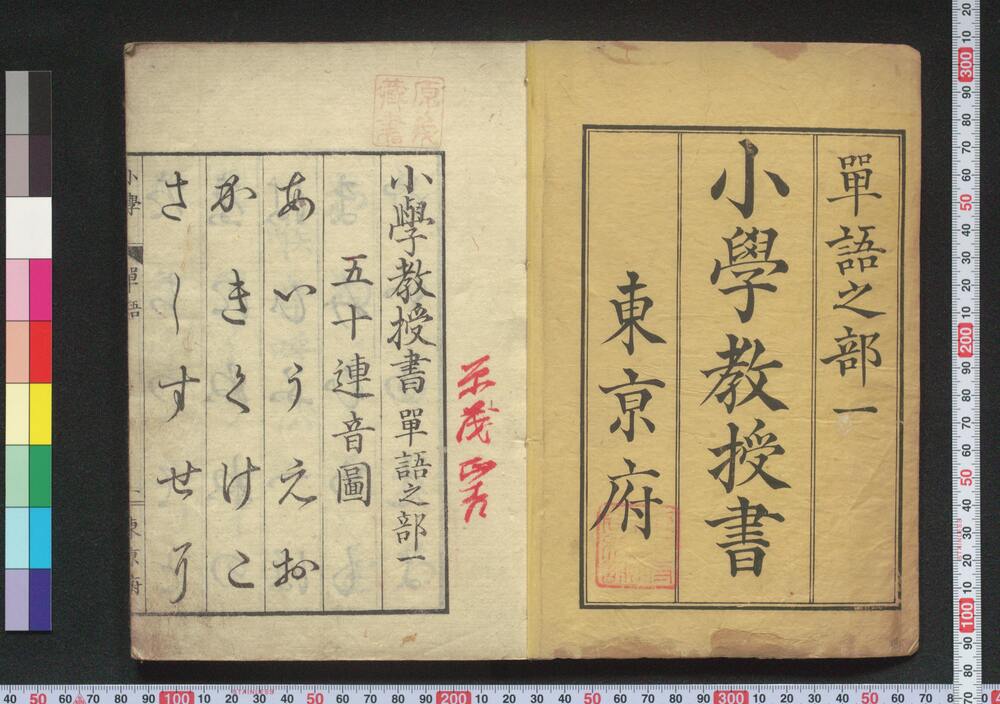 單語之部一
小學教授書
東亰府
原茂
藏書
小學教授書 單語之部一
五十連音圖
あいうえお
かきくけこ
さしすせそ
小學 單語 一 東亰府